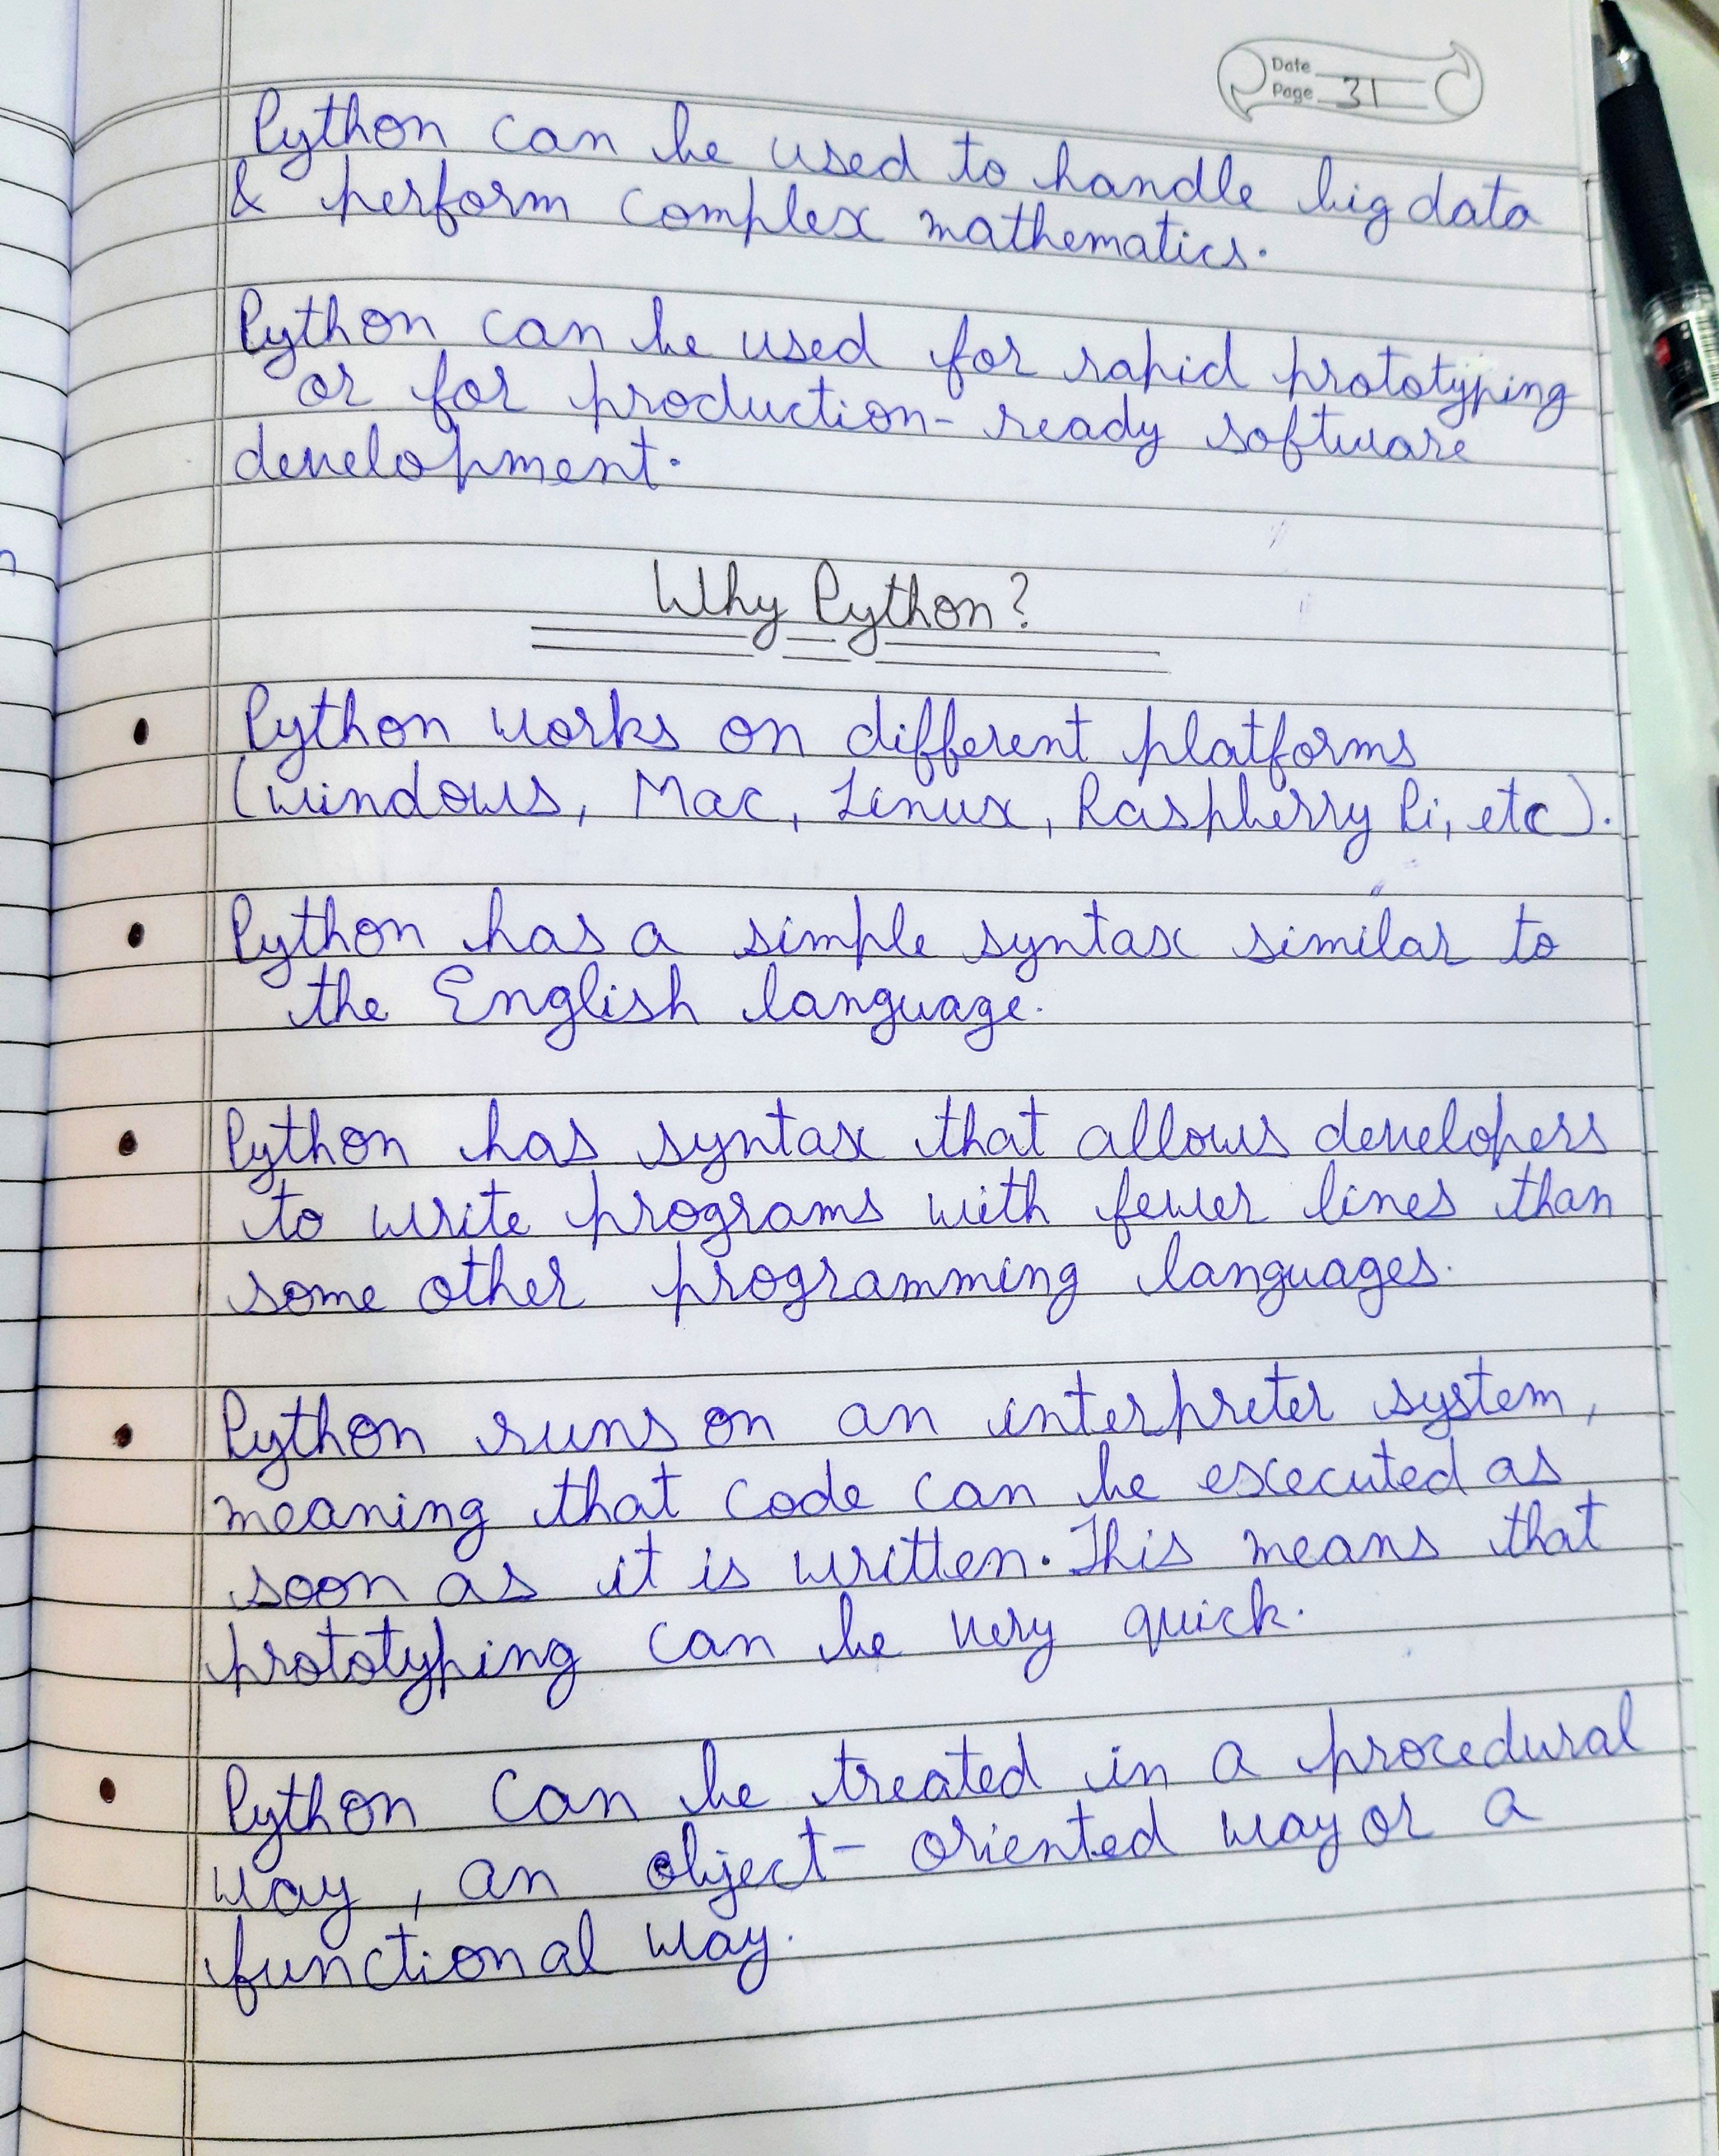 Date
Page 31
Python can be used to handle big data
& perform complex mathematics.
Python can be used for rapid prototyping
or for production-ready software
development.
Why Python?
• Python works on different platforms
(windows, Mac, Linux, Raspberry Pi, etc).
• Python has a simple syntax similar to
the English language.
• Python has syntax that allows developers
to write programs with fewer lines than
some other programming languages.
• Python runs on an interpreter system,
meaning that code can be executed as
soon as it is written. This means that
prototyping can be very quick.
• Python can be treated in a procedural
way, an object-oriented way or a
functional way.